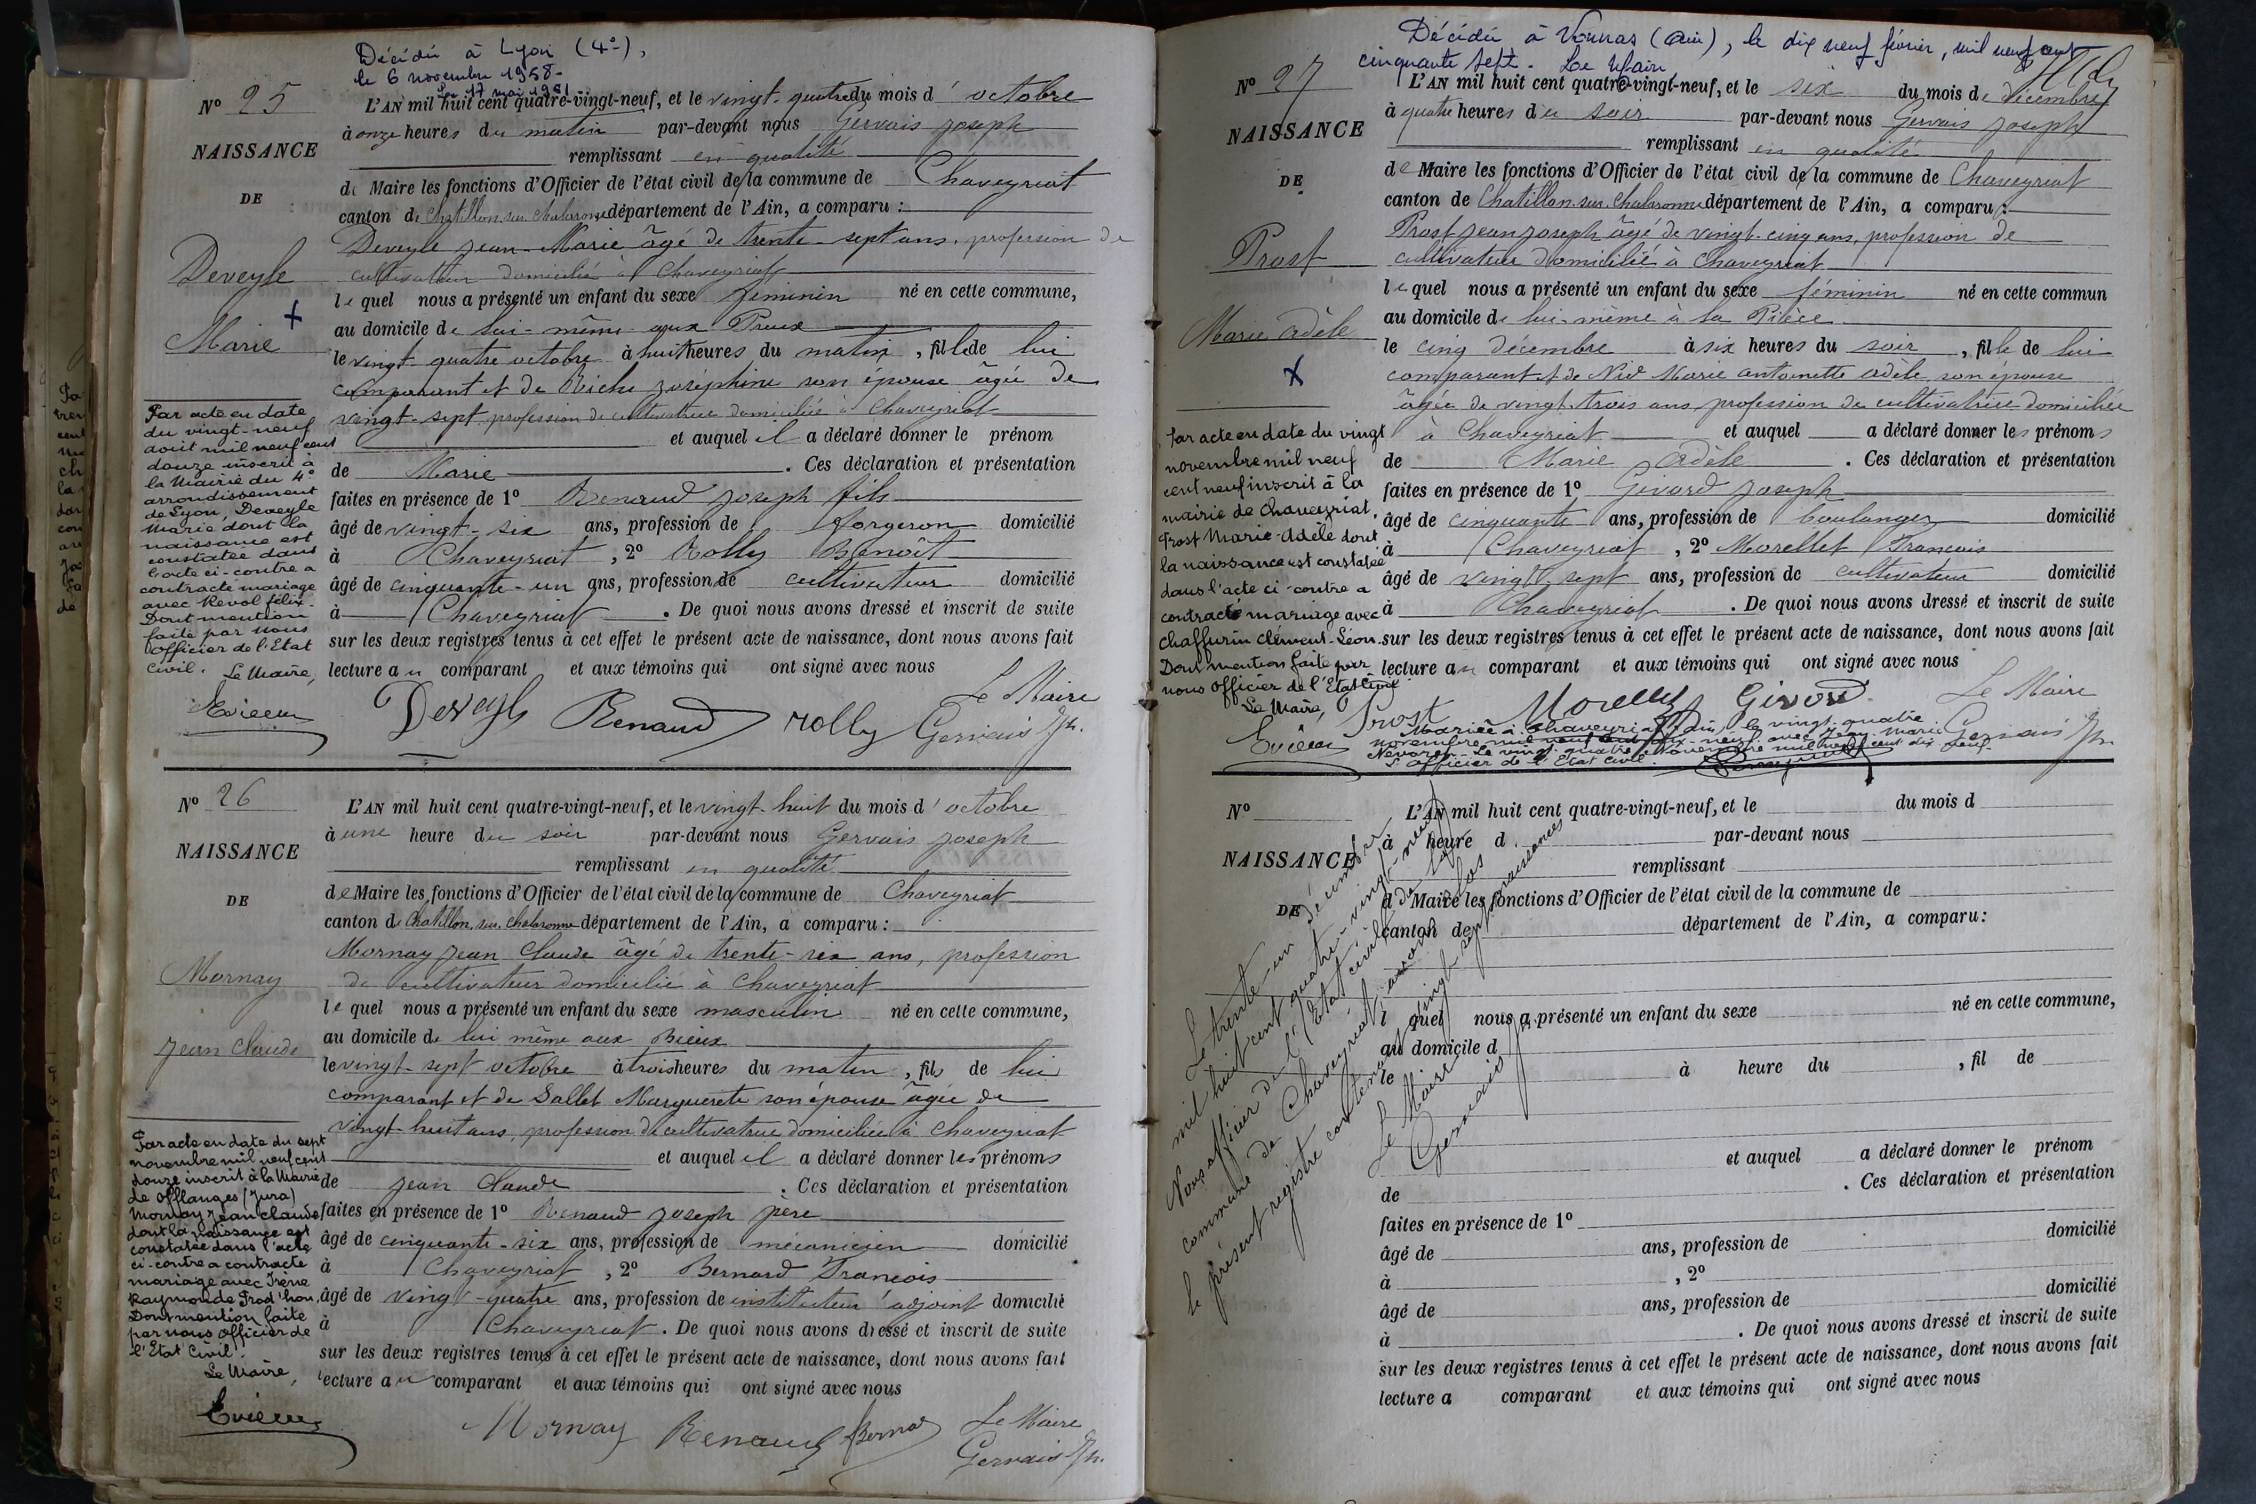 Décédée à Lyon (4e),
le 6 novembre 1958-
Le 17 mai 1961
N° 25
L'AN mil huit cent quatre-vingt-neuf, et le vingt-quatre du mois d'octobre
à onze heures du matin par-devant nous Gervais Joseph
NAISSANCE
remplissant en qualité
de Maire les fonctions d'Officier de l'état civil de la commune de Chaveyriat
DE
canton de Chatillon-sur-Chalaronne département de l'Ain, a comparu :
Deveyle Jean-Marie âgé de trente-sept ans, profession de
Deveyle
cultivateur domicilié à Chaveyriat
lequel nous a présenté un enfant du sexe féminin né en cette commune,
au domicile de lui-même aux Preux
Marie
le vingt-quatre octobre à huit heures du matin, fille de lui
comparant et de Riche Joséphine son épouse âgée de
vingt-sept profession de cultivatrice domiciliée à Chaveyriat
et auquel il a déclaré donner le prénom
de Marie. Ces déclaration et présentation
faites en présence de 1° Renaud Joseph fils
âgé de vingt-six ans, profession de forgeron domicilié
à Chaveyriat, 2° Rolly Benoît
âgé de cinquante-un ans, profession de cultivateur domicilié
à Chaveyriat. De quoi nous avons dressé et inscrit de suite
sur les deux registres tenus à cet effet le présent acte de naissance, dont nous avons fait
lecture au comparant et aux témoins qui ont signé avec nous
Le Maire
Deveyle Renaud Rolly Gervais Jh.
Par acte en date
du vingt-neuf
aout mil neuf cent
douze inscrit à
la Mairie du 4e
arrondissement
de Lyon, Deveyle
Marie dont la
naissance est
constatée dans
l'acte ci-contre a
contracté mariage
avec Revol félix.
Dont mention
faite par nous
officier de l'Etat
Civil. Le Maire,
N° 26
L'AN mil huit cent quatre-vingt-neuf, et le vingt-huit du mois d'octobre
à une heure du soir par-devant nous Gervais Joseph
NAISSANCE
remplissant en qualité
de Maire les fonctions d'Officier de l'état civil de la commune de Chaveyriat
DE
canton de Chatillon-sur-Chalaronne département de l'Ain, a comparu :
Mornay Jean Claude âgé de trente-six ans, profession
Mornay
de cultivateur domicilié à Chaveyriat
lequel nous a présenté un enfant du sexe masculin né en cette commune,
au domicile de lui même aux
Jean Claude
le vingt-sept octobre à trois heures du matin, fils de lui
comparant et de Sallet Marguerete son épouse âgée de
vingt-huit ans, profession de cultivatrice domiciliée à Chaveyriat
et auquel il a déclaré donner les prénoms
de Jean Claude. Ces déclaration et présentation
faites en présence de 1° Renaud Joseph père
âgé de cinquante-six ans, profession de mécanicien domicilié
à Chaveyriat, 2° Bernard Francois
âgé de vingt-quatre ans, profession de instituteur adjoint domicilié
à Chaveyriat. De quoi nous avons dressé et inscrit de suite
sur les deux registres tenus à cet effet le présent acte de naissance, dont nous avons fait
lecture au comparant et aux témoins qui ont signé avec nous
Le Maire
Mornay Renaud Bernard Gervais Jh.
Par acte en date du sept
novembre mil neuf cent
douze inscrit à la Mairie
de Offlanges (Jura)
Mornay Jean Claude
dont la naissance est
constatée dans l'acte
ci-contre a contracté
mariage avec Irène
Raymonde Prod'hon.
Dont mention faite
par nous officier de
l'Etat Civil.
Le Maire,
Décédée à Vonnas (Ain), le dix neuf février, mil neuf cent
cinquante sept. Le Maire
N° 27
L'AN mil huit cent quatre-vingt-neuf, et le six du mois de décembre
à quatre heures du soir par-devant nous Gervais Joseph
NAISSANCE
remplissant en qualité
de Maire les fonctions d'Officier de l'état civil de la commune de Chaveyriat
DE
canton de Chatillon-sur-Chalaronne département de l'Ain, a comparu :
Prost Jean Joseph âgé de vingt-cinq ans, profession de
Prost
cultivateur domicilié à Chaveyriat
lequel nous a présenté un enfant du sexe féminin né en cette commun
au domicile de lui-même à la
Marie Adèle
le cinq décembre à six heures du soir, fille de lui
comparant & de Nid Marie Antoinette Adèle son épouse
âgée de vingt-trois ans, profession de cultivatrice domiciliée
à Chaveyriat et auquel a déclaré donner les prénoms
de Marie Adèle. Ces déclaration et présentation
faites en présence de 1° Givord Joseph
âgé de cinquante ans, profession de boulanger domicilié
à Chaveyriat, 2° Morellet Francois
âgé de vingt-sept ans, profession de cultivateur domicilié
à Chaveyriat. De quoi nous avons dressé et inscrit de suite
sur les deux registres tenus à cet effet le présent acte de naissance, dont nous avons fait
lecture au comparant et aux témoins qui ont signé avec nous
Le Maire
Prost Morellet Givord Gervais Jh
Par acte en date du vingt
novembre mil neuf
cent neuf inscrit à la
mairie de Chaveyriat,
Prost Marie-Adèle dont
la naissance est constatée
dans l'acte ci-contre a
contracté mariage avec
Chaffurin Clément-Léon.
Dont mention faite par
nous officier de l'Etat Civil
Le Maire,
Mariée à Chaveyriat (Ain) le vingt-quatre
novembre mil neuf cent dix-neuf avec Jean Marie
Nevoret. Le vingt-quatre novembre mil neuf cent dix neuf.
L'officier de l'Etat Civil.
N°
L'AN mil huit cent quatre-vingt-neuf, et le du mois d
à heure d par-devant nous
NAISSANCE
remplissant
d Maire les fonctions d'Officier de l'état civil de la commune de
DE
canton de département de l'Ain, a comparu :
l quel nous a présenté un enfant du sexe né en cette commune,
au domicile d
le à heure du , fil de
et auquel a déclaré donner le prénom
de . Ces déclaration et présentation
faites en présence de 1°
âgé de ans, profession de domicilié
à , 2°
âgé de ans, profession de domicilié
à . De quoi nous avons dressé et inscrit de suite
sur les deux registres tenus à cet effet le présent acte de naissance, dont nous avons fait
lecture a comparant et aux témoins qui ont signé avec nous
Le trente-un décembre
mil huit cent quatre-vingt-neuf
Nous officier de l'Etat civil de la
commune de Chaveyriat, avons clos
le présent registre contenant vingt sept naissances
Le Maire
Gervais Jh.